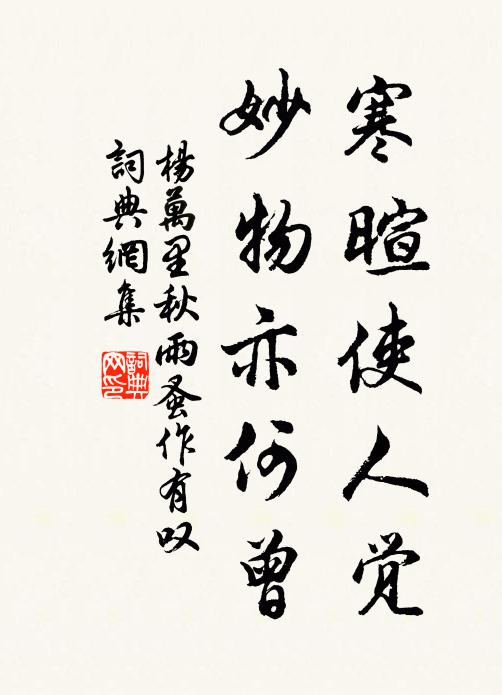 寒暄使人觉
妙物亦何曾
楊萬里秋雨蚤作有叹
詞典網集
詞典网印